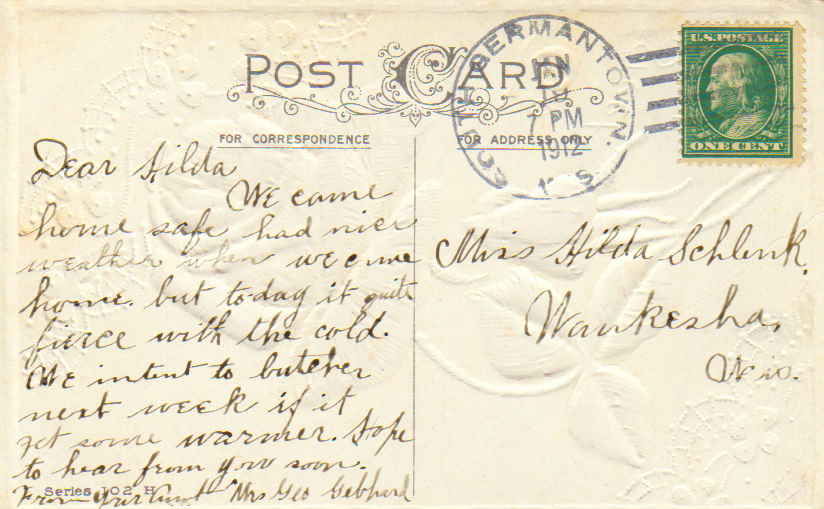 POST CARD
FOR CORRESPONDENCE
FOR ADDRESS ONLY
SOUTH GERMANTOWN.
JAN
7 PM
1912
WIS
U.S. POSTAGE
ONE CENT
Dear Hilda
We came
home safe had nice
weather when we come
home. but to-day it quite
fierce with the cold.
We intent to butcher
next week if it
get some warmer. Hope
to hear from you soon.
From your Aunt Mrs Geo Gebhard
Series 102 H
Miss Hilda Schlenk,
Waukesha,
Wis.